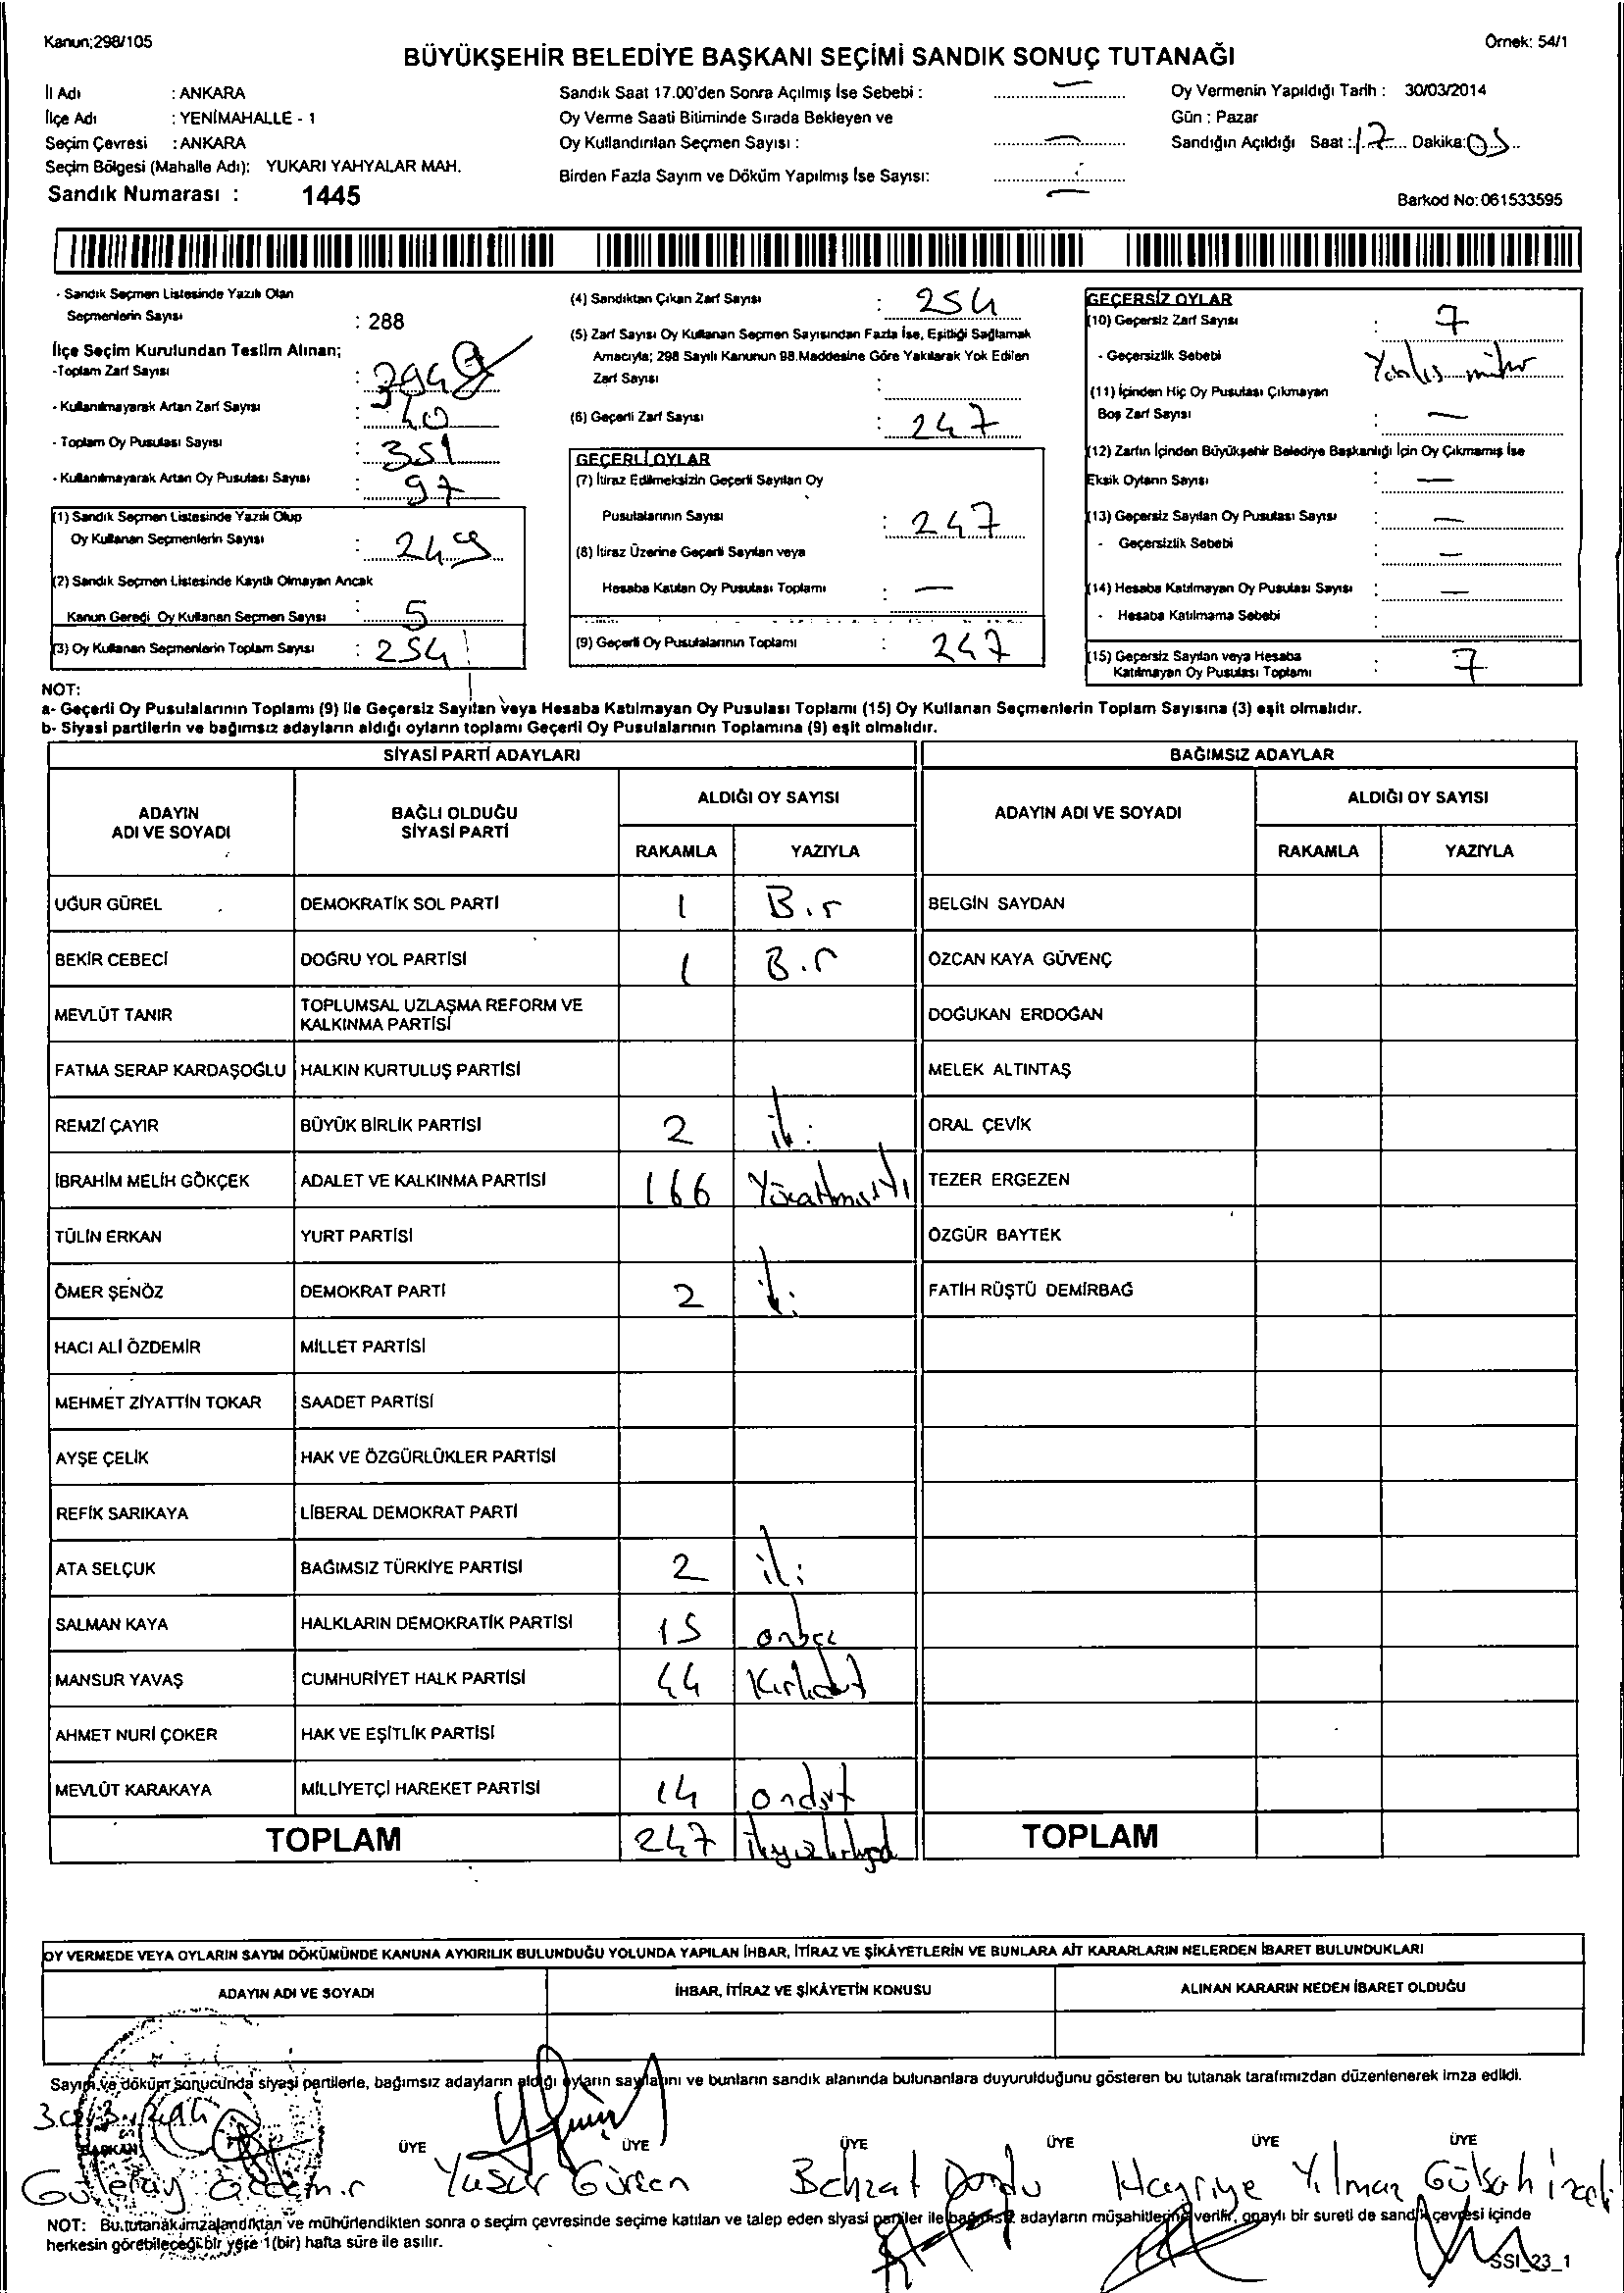 Kanun;298/105
Örnek: 54/1
BÜYÜKŞEHİR BELEDİYE BAŞKANI SEÇİMİ SANDIK SONUÇ TUTANAĞI
İl Adı : ANKARA
İlçe Adı : YENİMAHALLE - 1
Seçim Çevresi : ANKARA
Seçim Bölgesi (Mahalle Adı): YUKARI YAHYALAR MAH.
Sandık Numarası : 1445
Sandık Saat 17.00'den Sonra Açılmış İse Sebebi : —
Oy Verme Saati Bitiminde Sırada Bekleyen ve
Oy Kullandırılan Seçmen Sayısı : —
Birden Fazla Sayım ve Döküm Yapılmış İse Sayısı: —
Oy Vermenin Yapıldığı Tarih : 30/03/2014
Gün : Pazar
Sandığın Açıldığı Saat : 17 Dakika: 05
Barkod No:061533595
- Sandık Seçmen Listesinde Yazılı Olan
Seçmenlerin Sayısı : 288
İlçe Seçim Kurulundan Teslim Alınan;
-Toplam Zarf Sayısı :
- Kullanılmayarak Artan Zarf Sayısı : 40
- Toplam Oy Pusulası Sayısı : 351
- Kullanılmayarak Artan Oy Pusulası Sayısı : 97
(1) Sandık Seçmen Listesinde Yazılı Olup
Oy Kullanan Seçmenlerin Sayısı : 249
(2) Sandık Seçmen Listesinde Kayıtlı Olmayan Ancak
Kanun Gereği Oy Kullanan Seçmen Sayısı : 5
(3) Oy Kullanan Seçmenlerin Toplam Sayısı : 254
(4) Sandıktan Çıkan Zarf Sayısı : 254
(5) Zarf Sayısı Oy Kullanan Seçmen Sayısından Fazla İse, Eşitliği Sağlamak
Amacıyla; 298 Sayılı Kanunun 98.Maddesine Göre Yakılarak Yok Edilen
Zarf Sayısı :
(6) Geçerli Zarf Sayısı : 247
GEÇERLİ OYLAR
(7) İtiraz Edilmeksizin Geçerli Sayılan Oy
Pusulalarının Sayısı : 247
(8) İtiraz Üzerine Geçerli Sayılan veya
Hesaba Katılan Oy Pusulası Toplamı : —
(9) Geçerli Oy Pusulalarının Toplamı : 247
GEÇERSİZ OYLAR
(10) Geçersiz Zarf Sayısı : 7
- Geçersizlik Sebebi : Yanlış mühür
(11) İçinden Hiç Oy Pusulası Çıkmayan
Boş Zarf Sayısı : —
(12) Zarfın İçinden Büyükşehir Belediye Başkanlığı İçin Oy Çıkmamış İse
Eksik Oyların Sayısı : —
(13) Geçersiz Sayılan Oy Pusulası Sayısı : —
- Geçersizlik Sebebi : —
(14) Hesaba Katılmayan Oy Pusulası Sayısı : —
- Hesaba Katılmama Sebebi :
(15) Geçersiz Sayılan veya Hesaba
Katılmayan Oy Pusulası Toplamı : 7
NOT:
a- Geçerli Oy Pusulalarının Toplamı (9) ile Geçersiz Sayılan veya Hesaba Katılmayan Oy Pusulası Toplamı (15) Oy Kullanan Seçmenlerin Toplam Sayısına (3) eşit olmalıdır.
b- Siyasi partilerin ve bağımsız adayların aldığı oyların toplamı Geçerli Oy Pusulalarının Toplamına (9) eşit olmalıdır.
SİYASİ PARTİ ADAYLARI
BAĞIMSIZ ADAYLAR
ADAYIN ADI VE SOYADI
BAĞLI OLDUĞU SİYASİ PARTİ
ALDIĞI OY SAYISI
RAKAMLA YAZIYLA
ADAYIN ADI VE SOYADI
ALDIĞI OY SAYISI
RAKAMLA YAZIYLA
UĞUR GÜREL DEMOKRATİK SOL PARTİ 1 Bir BELGİN SAYDAN
BEKİR CEBECİ DOĞRU YOL PARTİSİ 1 Bir ÖZCAN KAYA GÜVENÇ
MEVLÜT TANIR TOPLUMSAL UZLAŞMA REFORM VE KALKINMA PARTİSİ DOĞUKAN ERDOĞAN
FATMA SERAP KARDAŞOĞLU HALKIN KURTULUŞ PARTİSİ MELEK ALTINTAŞ
REMZİ ÇAYIR BÜYÜK BİRLİK PARTİSİ 2 iki ORAL ÇEVİK
İBRAHİM MELİH GÖKÇEK ADALET VE KALKINMA PARTİSİ 166 Yüzaltmışaltı TEZER ERGEZEN
TÜLİN ERKAN YURT PARTİSİ ÖZGÜR BAYTEK
ÖMER ŞENÖZ DEMOKRAT PARTİ 2 iki FATİH RÜŞTÜ DEMİRBAĞ
HACI ALİ ÖZDEMİR MİLLET PARTİSİ
MEHMET ZİYATTİN TOKAR SAADET PARTİSİ
AYŞE ÇELİK HAK VE ÖZGÜRLÜKLER PARTİSİ
REFİK SARIKAYA LİBERAL DEMOKRAT PARTİ
ATA SELÇUK BAĞIMSIZ TÜRKİYE PARTİSİ 2 iki
SALMAN KAYA HALKLARIN DEMOKRATİK PARTİSİ 15 onbeş
MANSUR YAVAŞ CUMHURİYET HALK PARTİSİ 44 Kırkdört
AHMET NURİ ÇOKER HAK VE EŞİTLİK PARTİSİ
MEVLÜT KARAKAYA MİLLİYETÇİ HAREKET PARTİSİ 14 ondört
TOPLAM 247 ikiyüzkırkyedi TOPLAM
OY VERMEDE VEYA OYLARIN SAYIM DÖKÜMÜNDE KANUNA AYKIRILIK BULUNDUĞU YOLUNDA YAPILAN İHBAR, İTİRAZ VE ŞİKÂYETLERİN VE BUNLARA AİT KARARLARIN NELERDEN İBARET BULUNDUKLARI
ADAYIN ADI VE SOYADI İHBAR, İTİRAZ VE ŞİKÂYETİN KONUSU ALINAN KARARIN NEDEN İBARET OLDUĞU
Sayım ve döküm sonucunda siyasi partilerle, bağımsız adayların aldığı oyların sayılarını ve bunların sandık alanında bulunanlara duyurulduğunu gösteren bu tutanak tarafımızdan düzenlenerek imza edildi.
BAŞKAN ÜYE ÜYE ÜYE ÜYE ÜYE ÜYE
Yusuf Gürcen Behzat Hayriye Yılmaz Gülşah
NOT: Bu tutanak imzalandıktan ve mühürlendikten sonra o seçim çevresinde seçime katılan ve talep eden siyasi partiler ile bağımsız adayların müşahitlerine verilir, onaylı bir sureti de sandık çevresi içinde
herkesin görebileceği bir yere 1(bir) hafta süre ile asılır.
SSI_23_1